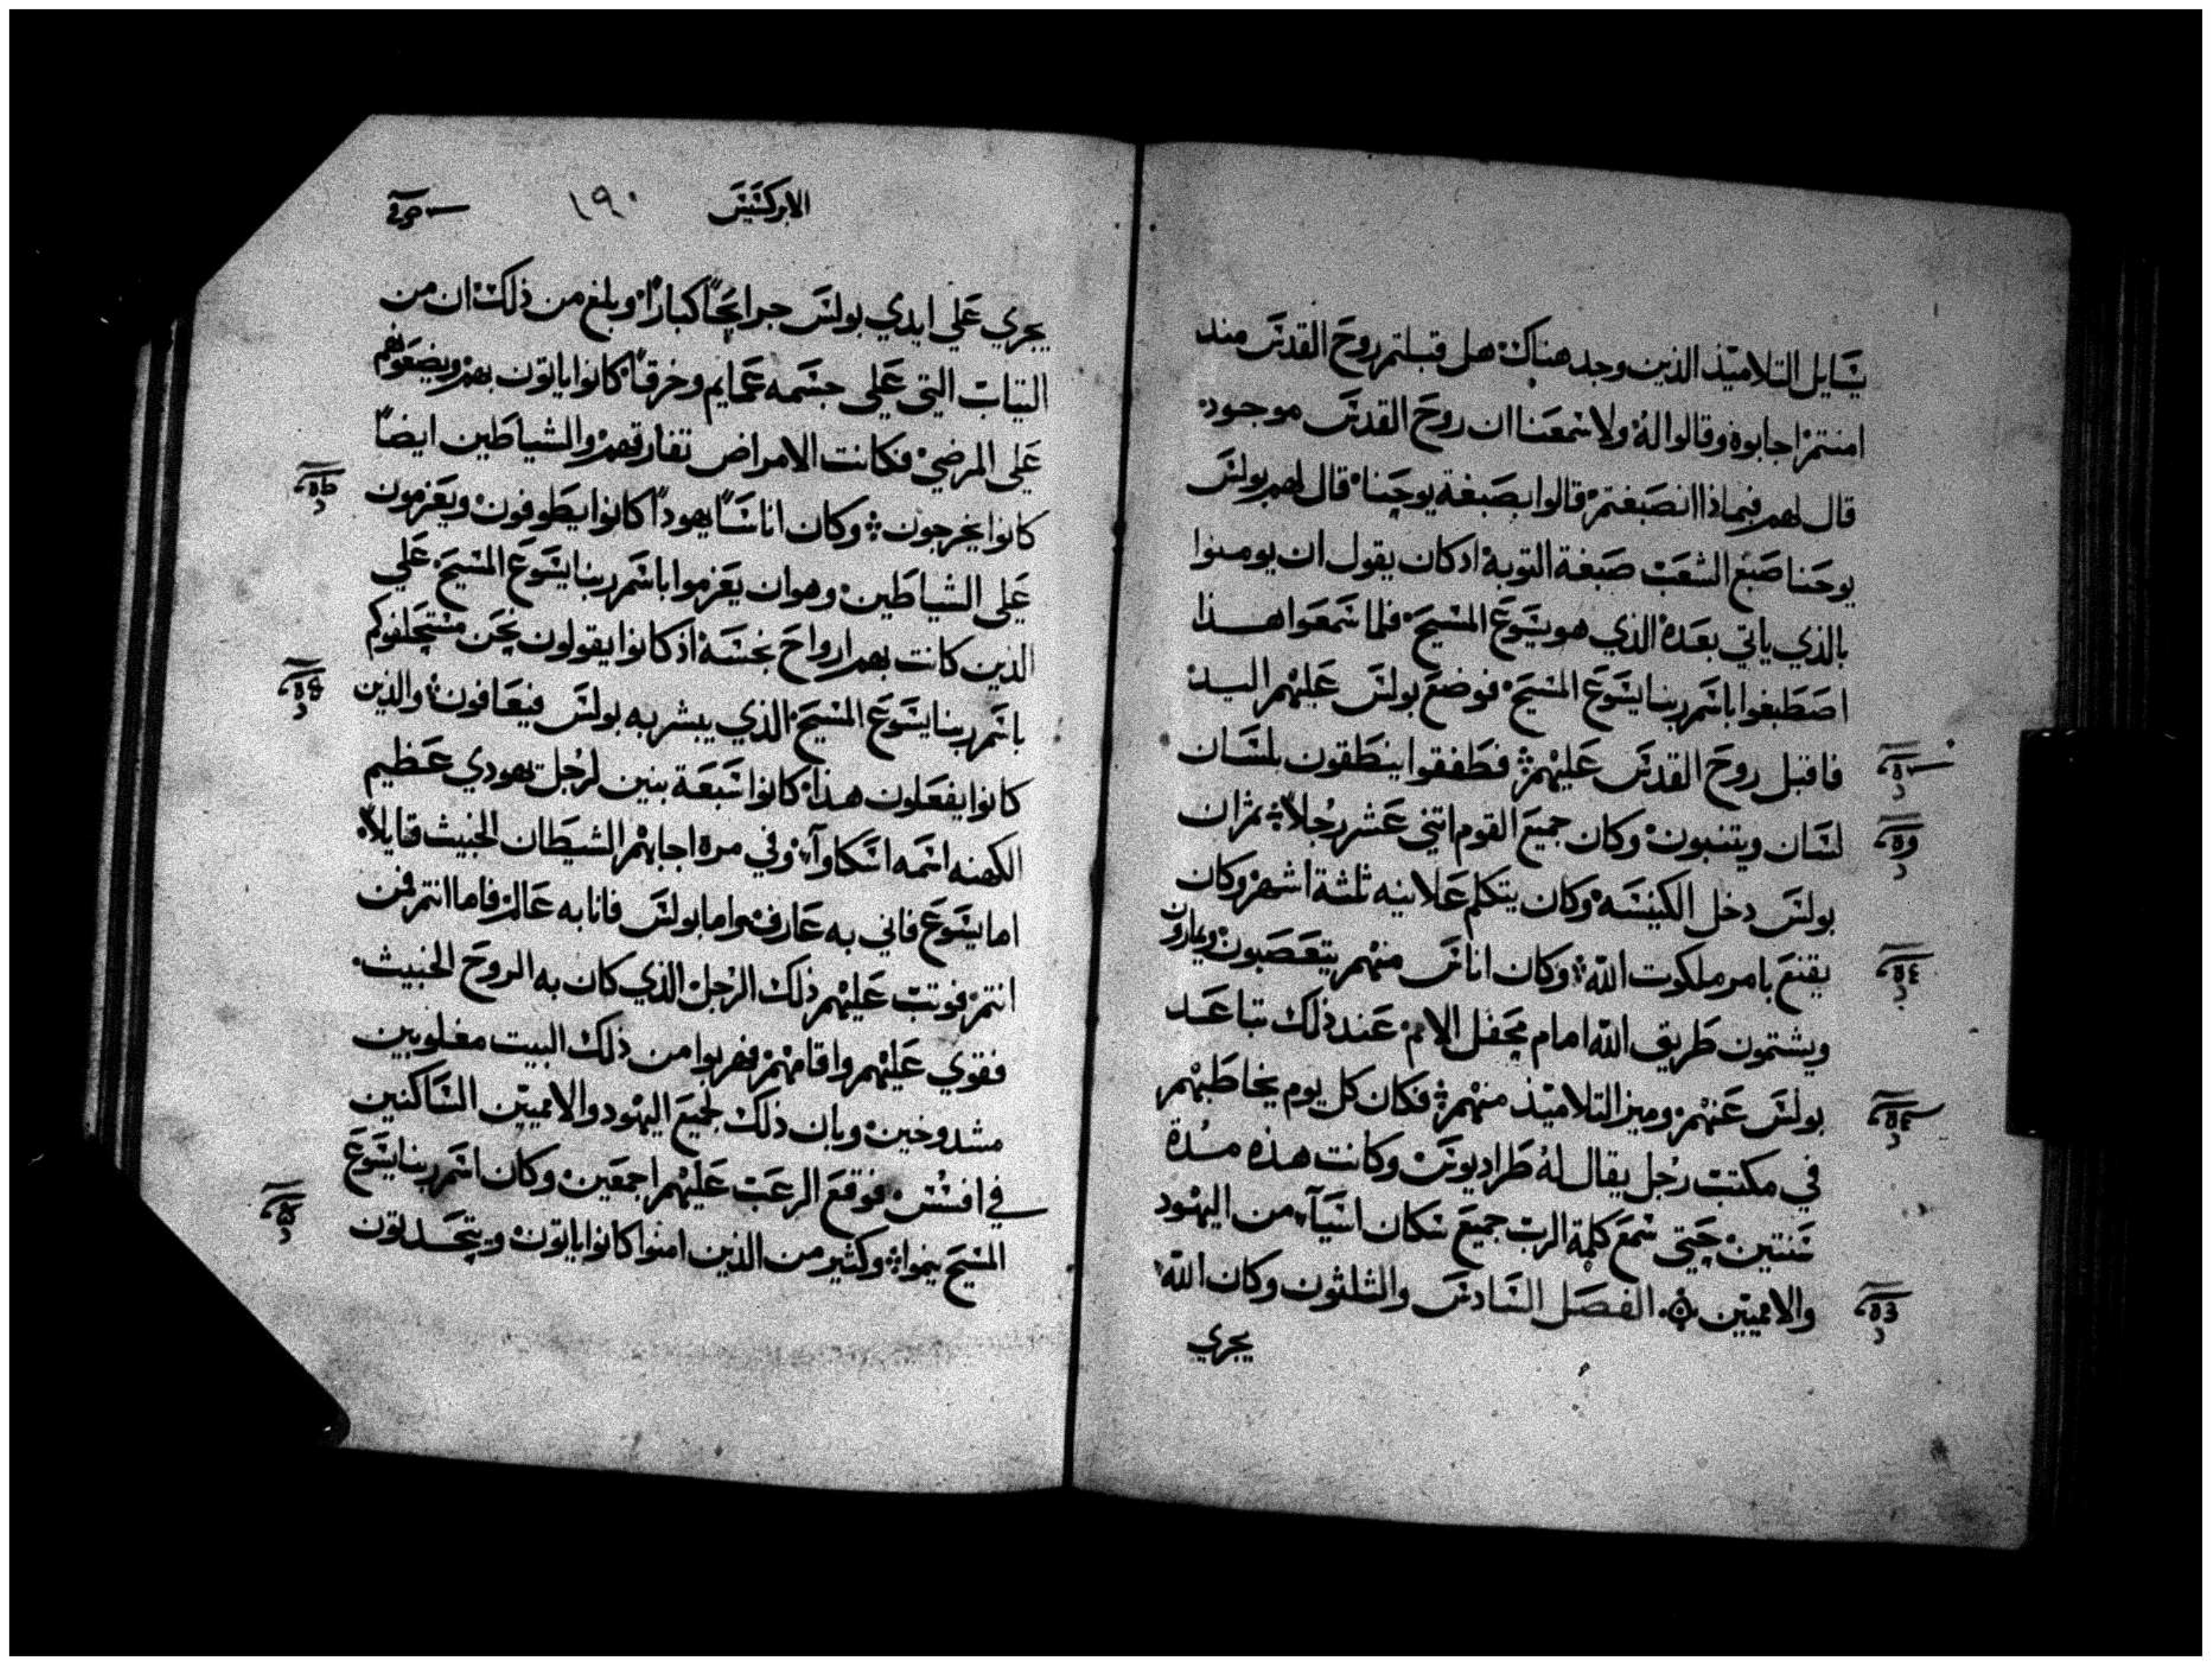 يسايل التلاميذ الذين وجد هناك هل قبلتم روح القدس منذ
امنتم اجابوه وقالوا له ولا سمعنا ان روح القدس موجود
قال لهم فبماذا انصبغتم قالوا بصبغة يوحنا قال لهم بولس
يوحنا صبغ الشعب صبغة التوبة ادكان يقول ان يومنوا
بالذي ياتي بعده الذي هو يسوع المسيح فلما سمعوا هذا
اصطبغوا باسم ربنا يسوع المسيح فوضع بولس عليهم اليد
فاقبل روح القدس عليهم فطفقوا ينطقون بلسان
لسان ويتنبون وكان جميع القوم اتني عشر رجلاً ثم ان
بولس دخل الكنيسه وكان يتكلم علانيه ثلثة اشهر وكان
يقنع بامر ملكوت الله وكان اناس منهم يتعصبون ويمارون
ويشتمون طريق الله امام محفل الامم عند ذلك تباعد
بولس عنهم وميز التلاميذ منهم فكان كل يوم يخاطبهم
في مكتب رجل يقال له طراديونس وكانت هذه مدة
سنتين حتى سمع كلمة الرب جميع سكان اسيآ من اليهود
والامميين الفصل السادس والثلثون وكان الله
يجري
الابركسيس ١٩٠
يجري علي ايدي بولس جرايحاً كباراً وبلغ من ذلك ان من
التياب التي علي جسمه عمايم وخرقاً كانوا ياتون بهم ويضعونهم
علي المرضي فكانت الامراض تفارقهم والشياطين ايضاً
كانوا يخرجون وكان اناساً يهوداً كانوا يطوفون ويعزمون
علي الشياطين وهو ان يعزموا باسم ربنا يسوع المسيح علي
الذين كانت بهم ارواح نجسه اذ كانوا يقولون نحن مستحلفوكم
باسم ربنا يسوع المسيح الذي يبشر به بولس فيعافون والذين
كانوا يفعلون هذا كانوا سبعة بنين لرجل يهودي عظيم
الكهنه اسمه اسكاوآ وفي مرة اجابهم الشيطان الخبيث قايلاً
اما يسوع فاني به عارف واما بولس فانا به عالم فاما انتم فمن
انتم فوتب عليهم ذلك الرجل الذي كان به الروح الخبيث
فقوي عليهم واقامهم فهربوا من ذلك البيت مغلوبين
مشدوخين وبان ذلك لجميع اليهود والامميين الساكنين
في افسس فوقع الرعب عليهم اجمعين وكان اسم ربنا يسوع
المسيح ينموا وكثير من الذين امنوا كانوا ياتون ويتحدتون